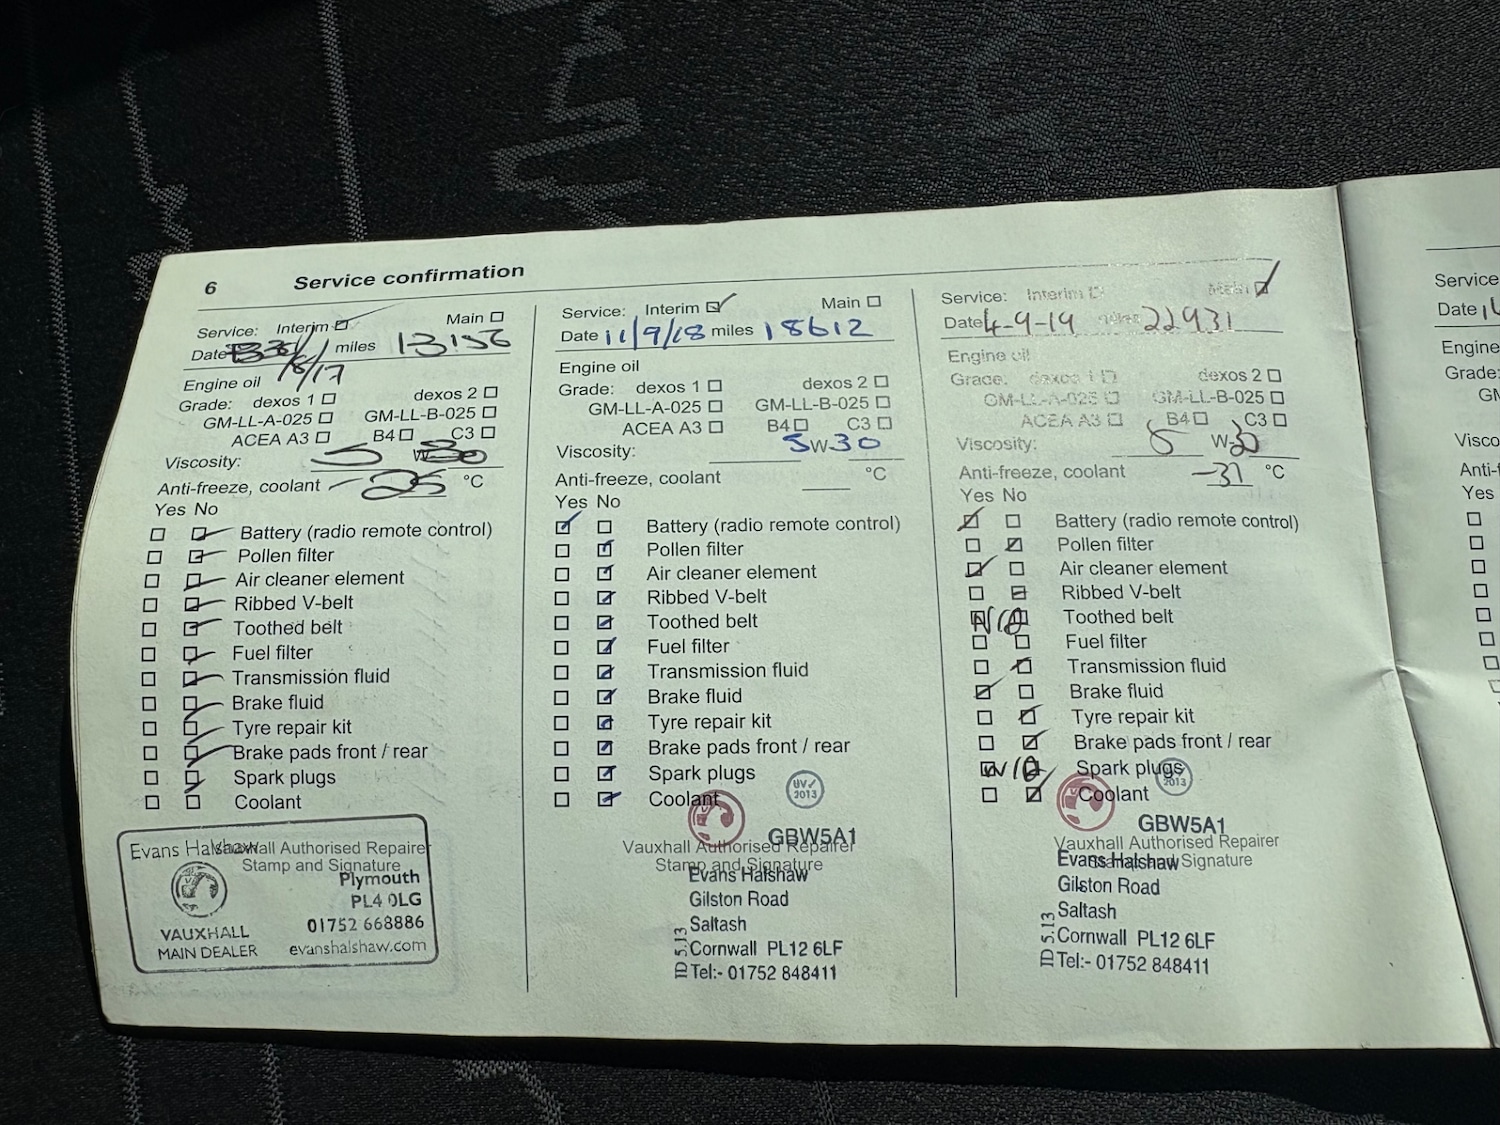 6 Service confirmation
Service: Interim Main
Date /8/17 miles 13156
Engine oil
Grade: dexos 1 dexos 2
GM-LL-A-025 GM-LL-B-025
ACEA A3 B4 C3
Viscosity: 5 W-30
Anti-freeze, coolant -25 °C
Yes No
Battery (radio remote control)
Pollen filter
Air cleaner element
Ribbed V-belt
Toothed belt
Fuel filter
Transmission fluid
Brake fluid
Tyre repair kit
Brake pads front / rear
Spark plugs
Coolant
Vauxhall Authorised Repairer
Stamp and Signature
Evans Halshaw
Plymouth
PL4 0LG
01752 668886
evanshalshaw.com
VAUXHALL
MAIN DEALER
Service: Interim Main
Date 11/9/18 miles 18612
Engine oil
Grade: dexos 1 dexos 2
GM-LL-A-025 GM-LL-B-025
ACEA A3 B4 C3
Viscosity: 5W-30
Anti-freeze, coolant °C
Yes No
Battery (radio remote control)
Pollen filter
Air cleaner element
Ribbed V-belt
Toothed belt
Fuel filter
Transmission fluid
Brake fluid
Tyre repair kit
Brake pads front / rear
Spark plugs
Coolant
2013
GBW5A1
Vauxhall Authorised Repairer
Stamp and Signature
Evans Halshaw
Gilston Road
Saltash
Cornwall PL12 6LF
Tel:- 01752 848411
ID 5.13
Service: Interim Main
Date 4-9-19 miles 22931
Engine oil
Grade: dexos 1 dexos 2
GM-LL-A-025 GM-LL-B-025
ACEA A3 B4 C3
Viscosity: 5 W-30
Anti-freeze, coolant -31 °C
Yes No
Battery (radio remote control)
Pollen filter
Air cleaner element
Ribbed V-belt
N/A Toothed belt
Fuel filter
Transmission fluid
Brake fluid
Tyre repair kit
Brake pads front / rear
N/A Spark plugs
Coolant
2013
GBW5A1
Vauxhall Authorised Repairer
Stamp and Signature
Evans Halshaw
Gilston Road
Saltash
Cornwall PL12 6LF
Tel:- 01752 848411
ID 5.13
Service
Date
Engine
Grade:
GM
Visco
Anti-f
Yes